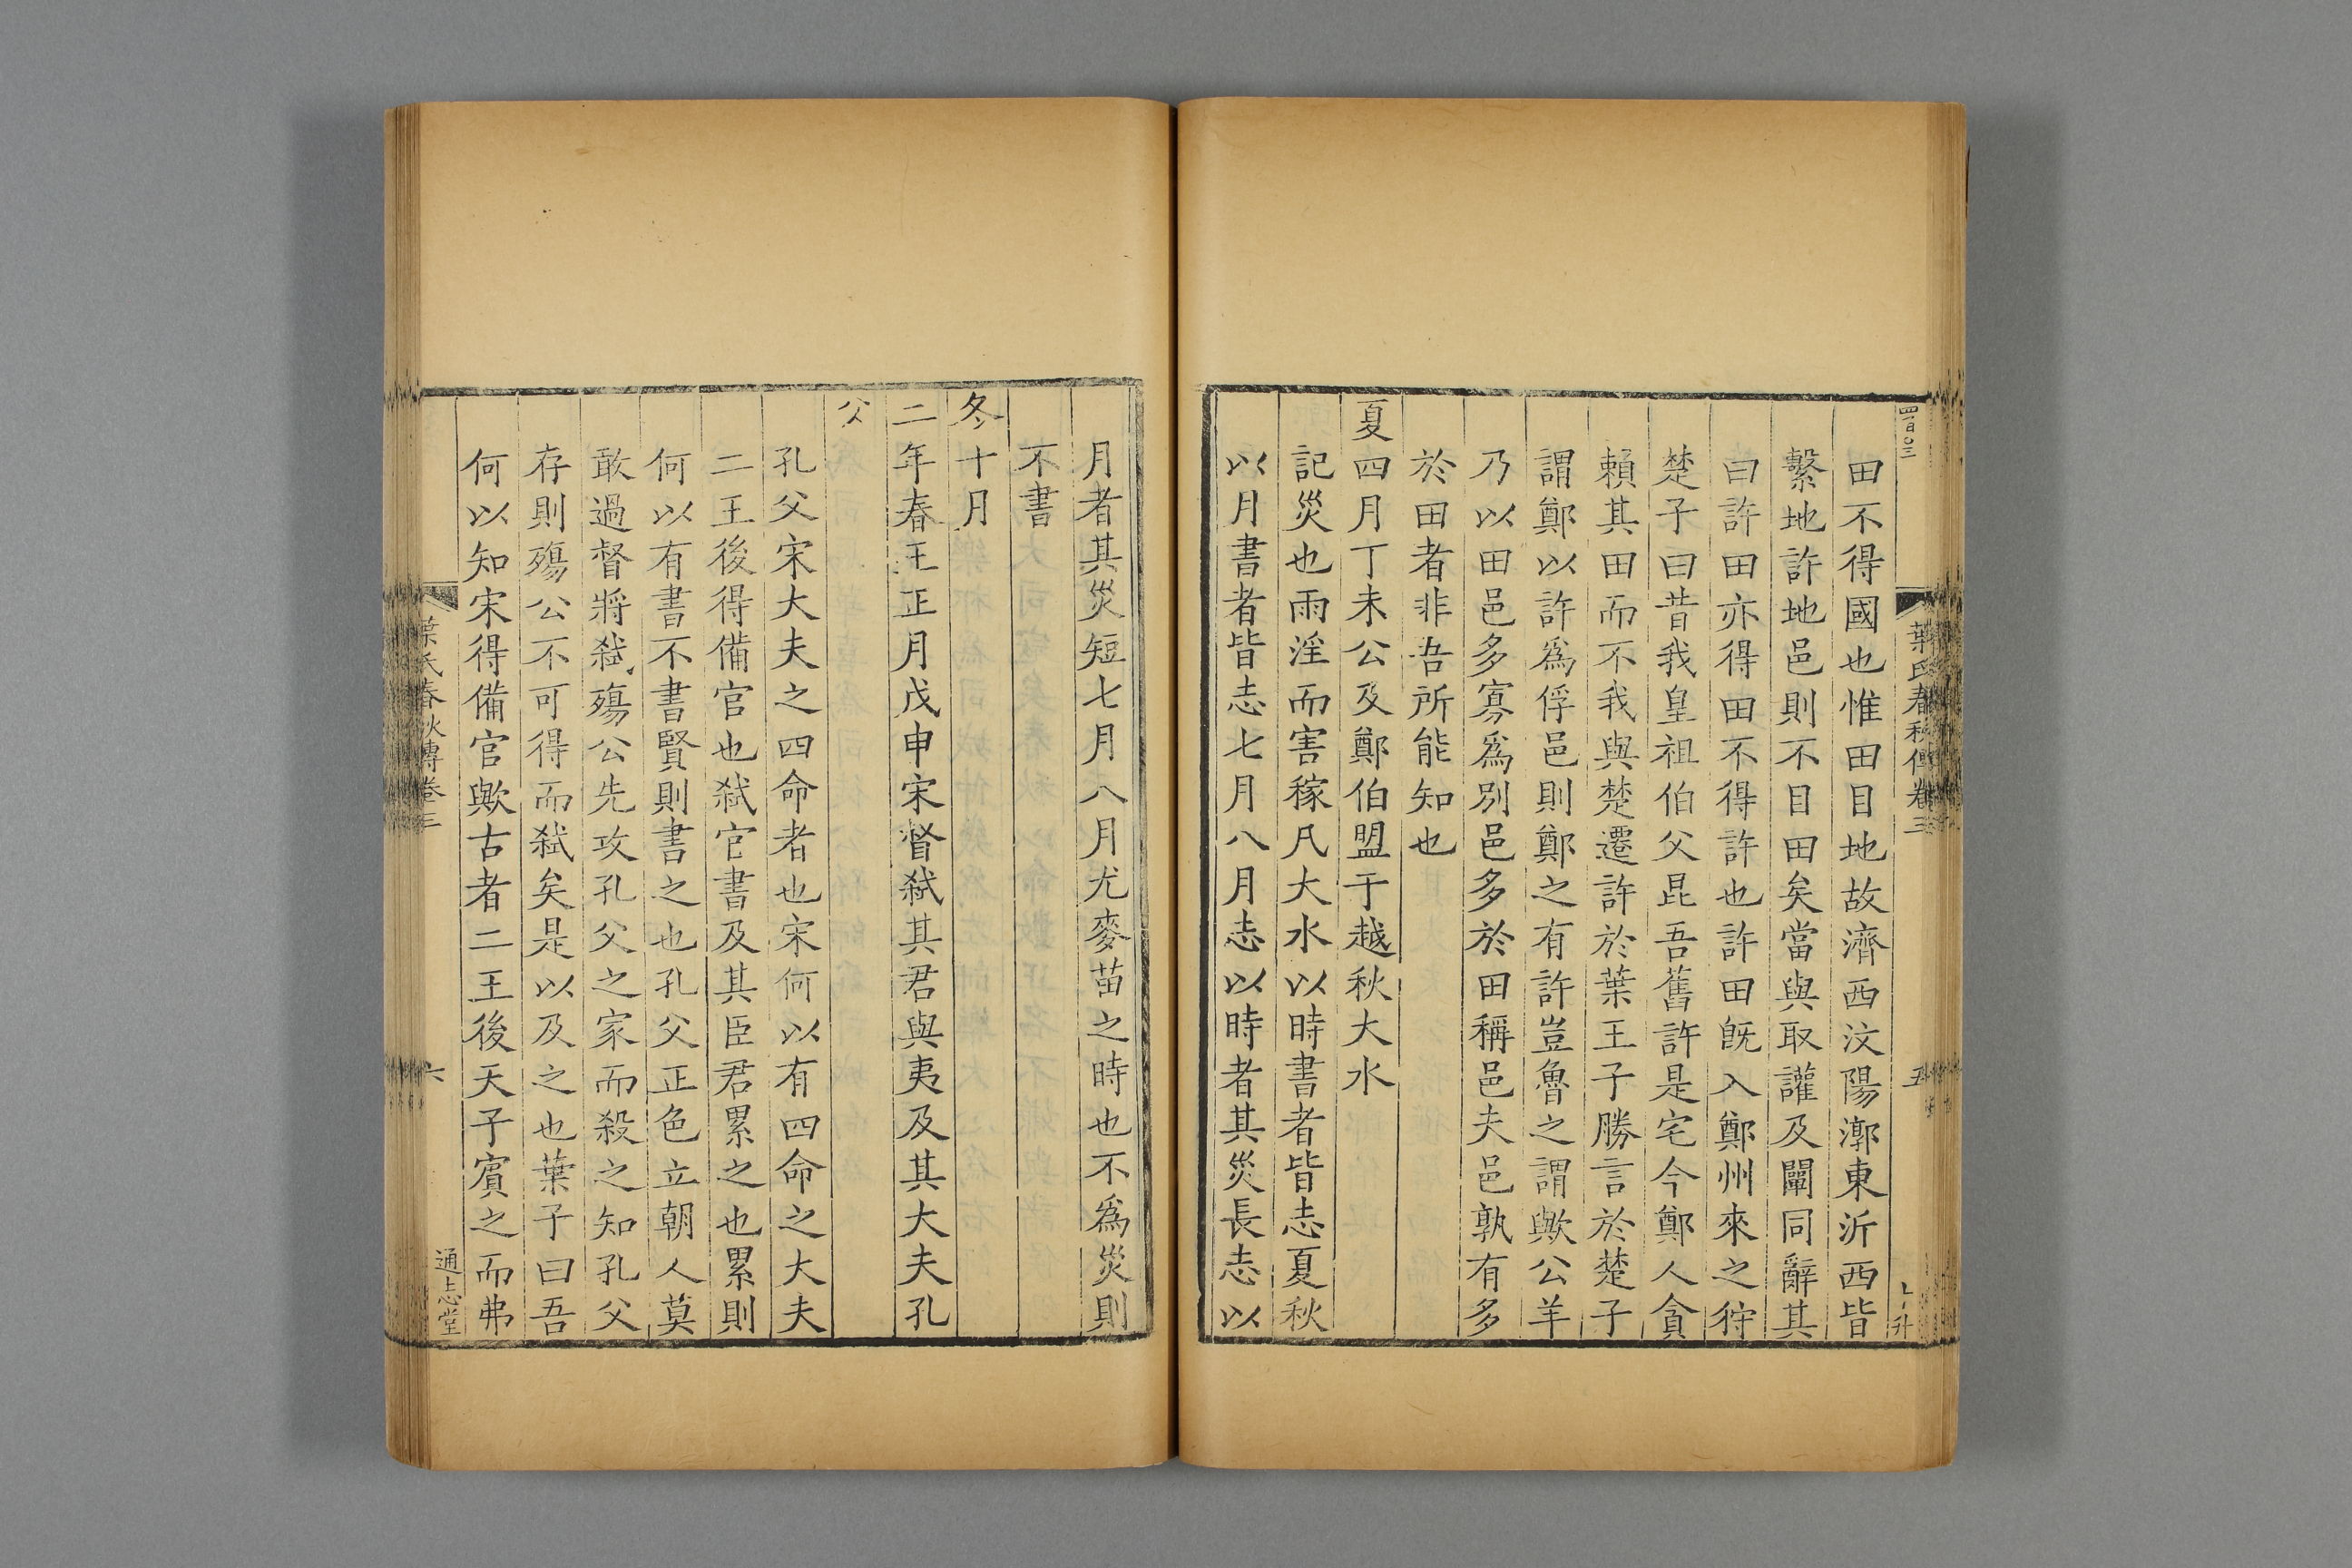 四百〇三
葉氏春秋傳卷三
五
田不得國也惟田目地故濟西汶陽漷東沂西皆
繫地許地邑則不目田矣當與取讙及闡同辭其
曰許田亦得田不得許也許田旣入鄭州來之狩
楚子曰昔我皇祖伯父昆吾舊許是宅今鄭人貪
賴其田而不我與楚遷許於葉王子勝言於楚子
謂鄭以許爲俘邑則鄭之有許豈魯之謂歟公羊
乃以田邑多寡爲别邑多於田稱邑夫邑孰有多
於田者非吾所能知也
夏四月丁未公及鄭伯盟于越秋大水
記災也雨淫而害稼凡大水以時書者皆志夏秋
以月書者皆志七月八月志以時者其災長志以
月者其災短七月八月尤麥苗之時也不爲災則
不書
冬十月
二年春王正月戊申宋督弑其君與夷及其大夫孔
父
孔父宋大夫之四命者也宋何以有四命之大夫
二王後得備官也弑官書及其臣君累之也累則
何以有書不書賢則書之也孔父正色立朝人莫
敢過督將弑殤公先攻孔父之家而殺之知孔父
存則殤公不可得而弑矣是以及之也葉子曰吾
何以知宋得備官歟古者二王後天子賓之而弗
葉氏春秋傳卷三
六
通志堂